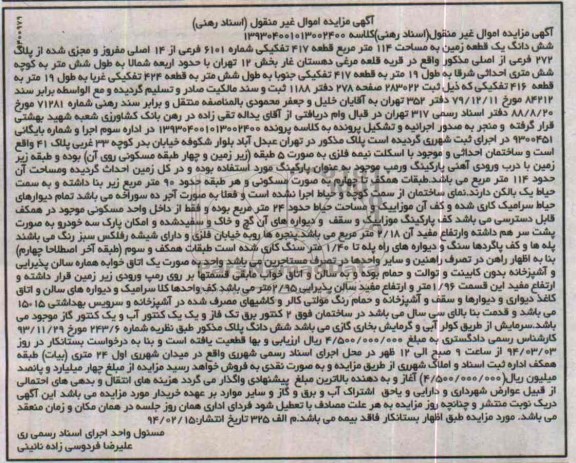 آگهی مزایده اموال غیر منقول (اسناد رهنی)
آگهی مزایده اموال غیر منقول(اسناد رهنی)کلاسه ۱۳۹۳۰۴۰۰۱۰۱۳۰۰۲۴۰۰
شش دانگ یک قطعه زمین به مساحت ۱۱۴ متر مربع قطعه ۴۱۷ تفکیکی شماره ۶۱۰۱ فرعی از ۱۴ اصلی مفروز و مجزی شده از پلاک
۲۷۲ فرعی از اصلی مذکور واقع در قریه قلعه مرغی دهستان غار بخش ۱۲ تهران با حدود اربعه شمالا به طول شش متر به کوچه
شش متری احداثی شرقا به طول ۱۹ متر به قطعه ۴۱۷ تفکیکی جنوبا به طول شش متر به قطعه ۴۲۴ تفکیکی غربا به طول ۱۹ متر به
قطعه ۴۱۶ تفکیکی که ذیل ثبت ۲۸۳۰۲۲ صفحه ۲۷۸ دفتر ۱۱۸۸ ثبت و سند مالکیت صادر و تسلیم گردیده و مع الواسطه برابر سند
۸۴۲۱۲ مورخ ۷۹/۱۲/۱۱ دفتر ۳۵۲ تهران به آقایان خلیل و جعفر محمودی بالمناصفه منتقل و برابر سند رهنی شماره ۷۱۲۸۱ مورخ
۸۸/۸/۲۰ دفتر اسناد رسمی ۳۱۷ تهران در قبال وام دریافتی از آقای یداله تقی زاده در رهن بانک کشاورزی شعبه شهید بهشتی
قرار گرفته و منجر به صدور اجرائیه و تشکیل پرونده به کلاسه پرونده ۱۳۹۳۰۴۰۰۱۰۱۳۰۰۲۴۰۰ در اداره سوم اجرا و شماره بایگانی
۹۳۰۰۴۵۱ در اجرای ثبت شهرری گردیده است پلاک مذکور در تهران عبدل آباد بلوار شکوفه خیابان بدر کوچه ۳۳ غربی پلاک ۴۱ واقع
است و ساختمان احداثی و موجود با اسکلت نیمه فلزی به صورت ۵ طبقه (زیر زمین و چهار طبقه مسکونی روی آن) بوده و طبقه زیر
زمین با درب ورودی آهنی پارکینگ ورمپ موجود به عنوان پارکینگ مورد استفاده بوده و در کل زمین احداث گردیده ومساحت آن
حدود ۱۱۴ متر مربع می باشد.طبقات همکف تا چهارم به صورت مسکونی و هر طبقه حدود ۹۰ متر مربع زیر بنا داشته و به سمت
حیاط یک بالکن دارند.نمای ساختمان از سمت کوچه و حیاط اجرا نشده است و فعلا به صورت آجر ده سوراخه می باشد تمام دیوارهای
حیاط سرامیک کاری شده و کف آن موزاییک و مساحت حیاط حدود ۲۴ متر مربع بوده و فقط از داخل واحد مسکونی موجود در همکف
قابل دسترسی می باشد کف پارکینگ موزاییک و سقف و دیواره های آن گچ و خاک و سفیدشده و امکان پارک سه خودرو به صورت
پشت سر هم داشته وارتفاع مفید آن ۲/۱۸ متر مربع می باشد.پنجره ها روبه خیابان فلزی و دارای شیشه رفلکس سبز رنگ می باشند
پله ها و کف پاگردها سنگ و دیواره های راه پله تا ۱/۴۰ متر سنگ کاری شده است طبقات همکف و سوم (طبقه آخر اصطلاحا چهارم)
بنا به اظهار راهن در تصرف راهنین و سایر واحدها در تصرف مستاجرین می باشد واحد به صورت یک اتاق خوابه همراه سالن پذیرایی
و آشپزخانه بدون کابینت و توالت و حمام بوده که سالن و اتاق خواب طبقه همکف بر روی رمپ ورودی زیر زمین قرار داشته و
ارتفاع مفید این قسمت ۱/۹۶ متر و ارتفاع مفید سالن پذیرایی ۲/۹۵متر می باشد کف واحدها کلا سرامیک و دیواره های سالن و اتاق
کاغذ دیواری و دیوارها و سقف و آشپزخانه و حمام رنگ مولتی کالر و کاشیهای مصرف شده در آشپزخانه و سرویس بهداشتی ۱۵*۱۵
می باشد و قدمت بنا بالای سی سال می باشد در ساختمان فوق ۲ کنتور برق تک فاز و یک یک کنتور آب و یک کنتور گاز موجود می
باشد.سرمایش از طریق کولر آبی و گرمایش بخاری گازی می باشد شش دانگ پلاک مذکور طبق نظریه شماره ۲۴۳/۶ مورخ ۹۳/۱۱/۲۹
کارشناس رسمی دادگستری به مبلغ ۴/۵۰۰/۰۰۰/۰۰۰ ریال ارزیابی و بها قطعیت یافته است و بنا به درخواست بستانکار در روز
۹۴/۰۳/۰۳ از ساعت ۹ صبح الی ۱۲ ظهر در محل اجرای اسناد رسمی شهرری واقع در میدان شهرری اول ۲۴ متری (بیات) طبقه
همکف اداره ثبت اسناد و املاک شهرری از طریق مزایده و به صورت نقدی به فروش خواهد رسید مزایده از مبلغ چهار میلیارد و پانصد
میلیون ریال(۴/۵۰۰/۰۰۰/۰۰۰) آغاز و به دهنده بالاترین مبلغ پیشنهادی واگذار می گردد هزینه های انتقال و بدهی های احتمالی
از قبیل عوارض شهرداری و دارایی و یاحق اشتراک آب و برق و گاز و سایر موارد بر عهده خریدار مورد مزایده می باشد این آگهی
دریک نوبت منتشر و چنانچه روز مزایده به هر علت مصادف با تعطیل شود فردای اداری همان روز جلسه در همان مکان و زمان منعقد
می باشد. مورد مزایده طبق اظهار بستانکار فاقد بیمه می باشد.م الف ۳۲۵ تاریخ انتشار:۹۴/۰۲/۱۵
مسئول واحد اجرای اسناد رسمی ری
علیرضا فردوسی زاده نائینی